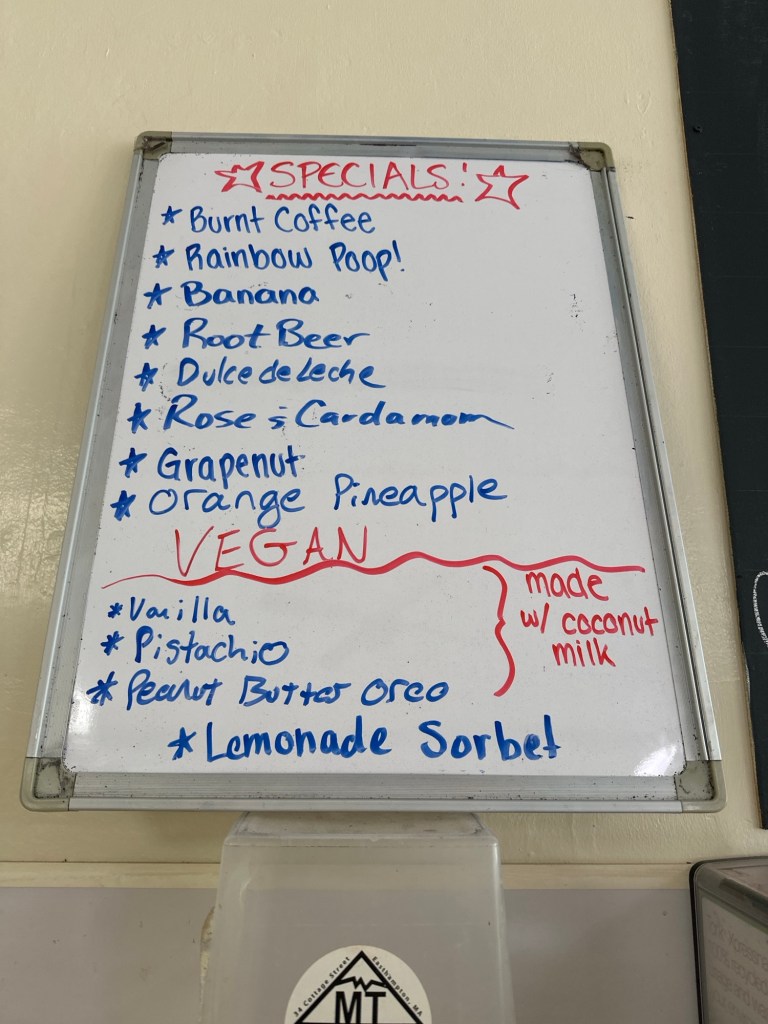 SPECIALS!
* Burnt Coffee
* Rainbow Poop!
* Banana
* Root Beer
* Dulce de Leche
* Rose & Cardamom
* Grapenut
* Orange Pineapple
VEGAN
* Vanilla
* Pistachio
* Peanut Butter Oreo
made
w/ coconut
milk
* Lemonade Sorbet
34 Cottage Street Easthampton, MA
MT